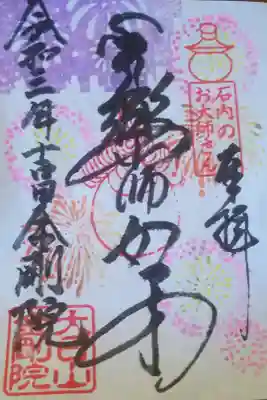 奉拝
石内の
お大師さん
薬師如来
令和三年吉日 金剛院
金剛院